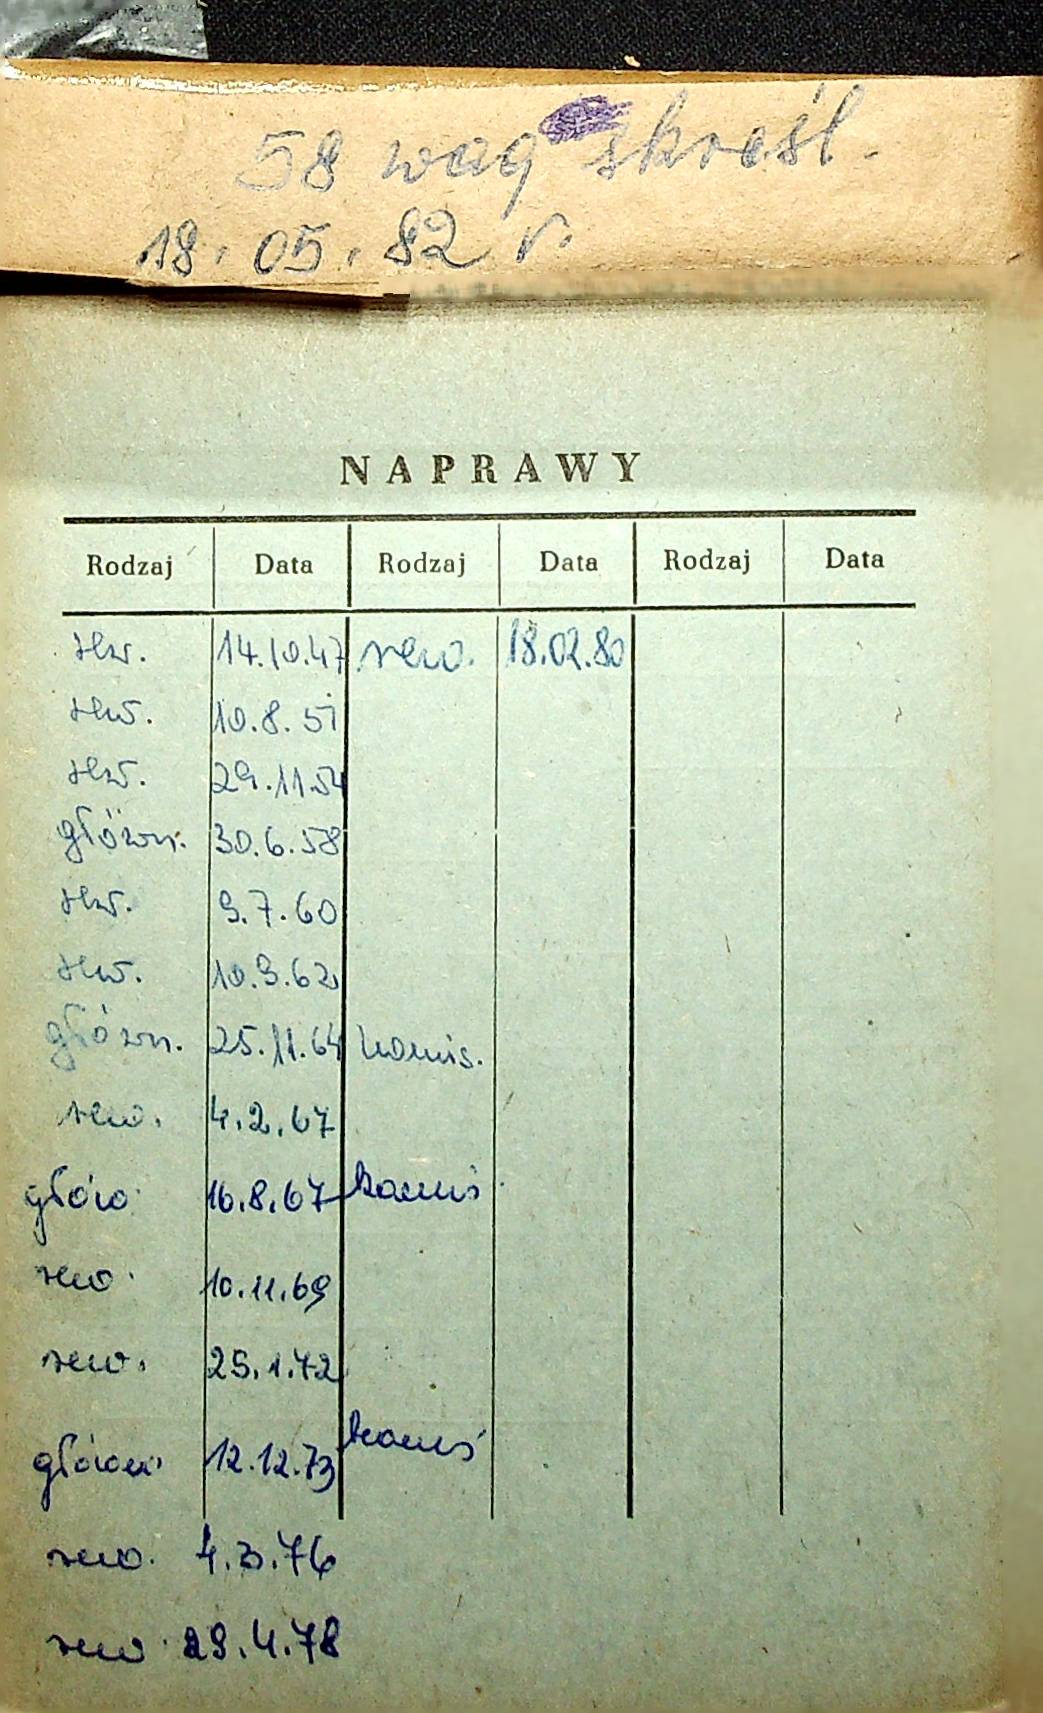 58 wag skreśl.
18.05.82 r.
NAPRAWY
Rodzaj Data Rodzaj Data Rodzaj Data
rew. 14.10.47 rew. 18.02.80
rew. 10.8.51
rew. 29.11.54
główn. 30.6.58
rew. 9.7.60
rew. 10.9.62
główn. 25.11.64 komis.
rew. 4.2.67
głów 16.8.67 komis
rew. 10.11.69
rew. 25.1.72
główn 12.12.73 komis
rew. 4.3.76
rew. 29.4.78